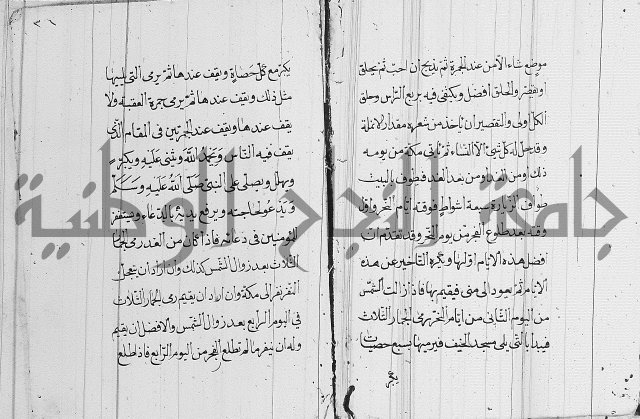 موضع شاء الا من عند الجمرة ثم يذبح ان احب ثم يحلق
او يقصر والحلق افضل ويكتفى فيه بربع الرأس وحلق
الكل اولى والتقصير ان ياخذ من شعره مقدار الانملة
وقد حل له كل شئ الا النساء ثم ياتى مكة من يومه
ذلك او من الغد او من بعد الغد فيطوف بالبيت
طواف الزيارة سبعة اشواط فوقته ايام النحر واول
وقته بعد طلوع الفجر من يوم النحر وقد تقدم ان
افضل هذه الايام اولها ويكره التاخير عن هذه
الايام ثم يعود الى منى فيقيم بها فاذا زالت الشمس
من اليوم الثانى من ايام النحر رمى الجمار الثلاث
فيبدا بالتى يلى مسجد الخيف فيرميها بسبع حصيات
يكبر
٢٦
يكبر مع كل حصاة ويقف عندها ثم يرمى التى يليها
مثل ذلك ويقف عندها ثم يرمى جمرة العقبة ولا
يقف عندها ويقف عند الجمرتين فى المقام الذى
يقف فيه الناس ويحمد الله ويثنى عليه ويكبر
ويهلل ويصلى على النبى صلى الله عليه وسلم
ويدعو لحاجته ويرفع يديه بالدعاء ويستغفر
للمؤمنين فى دعائه فاذا كان من الغد رمى الجمار
الثلاث بعد زوال الشمس كذلك وان اراد ان يتعجل
النفر نفر الى مكة وان اراد ان يقيم رمى الجمار الثلاث
فى اليوم الرابع بعد زوال الشمس والافضل ان يقيم
وله ان ينفر ما لم تطلع الفجر من اليوم الرابع فاذا طلع
جامعة الوطنية